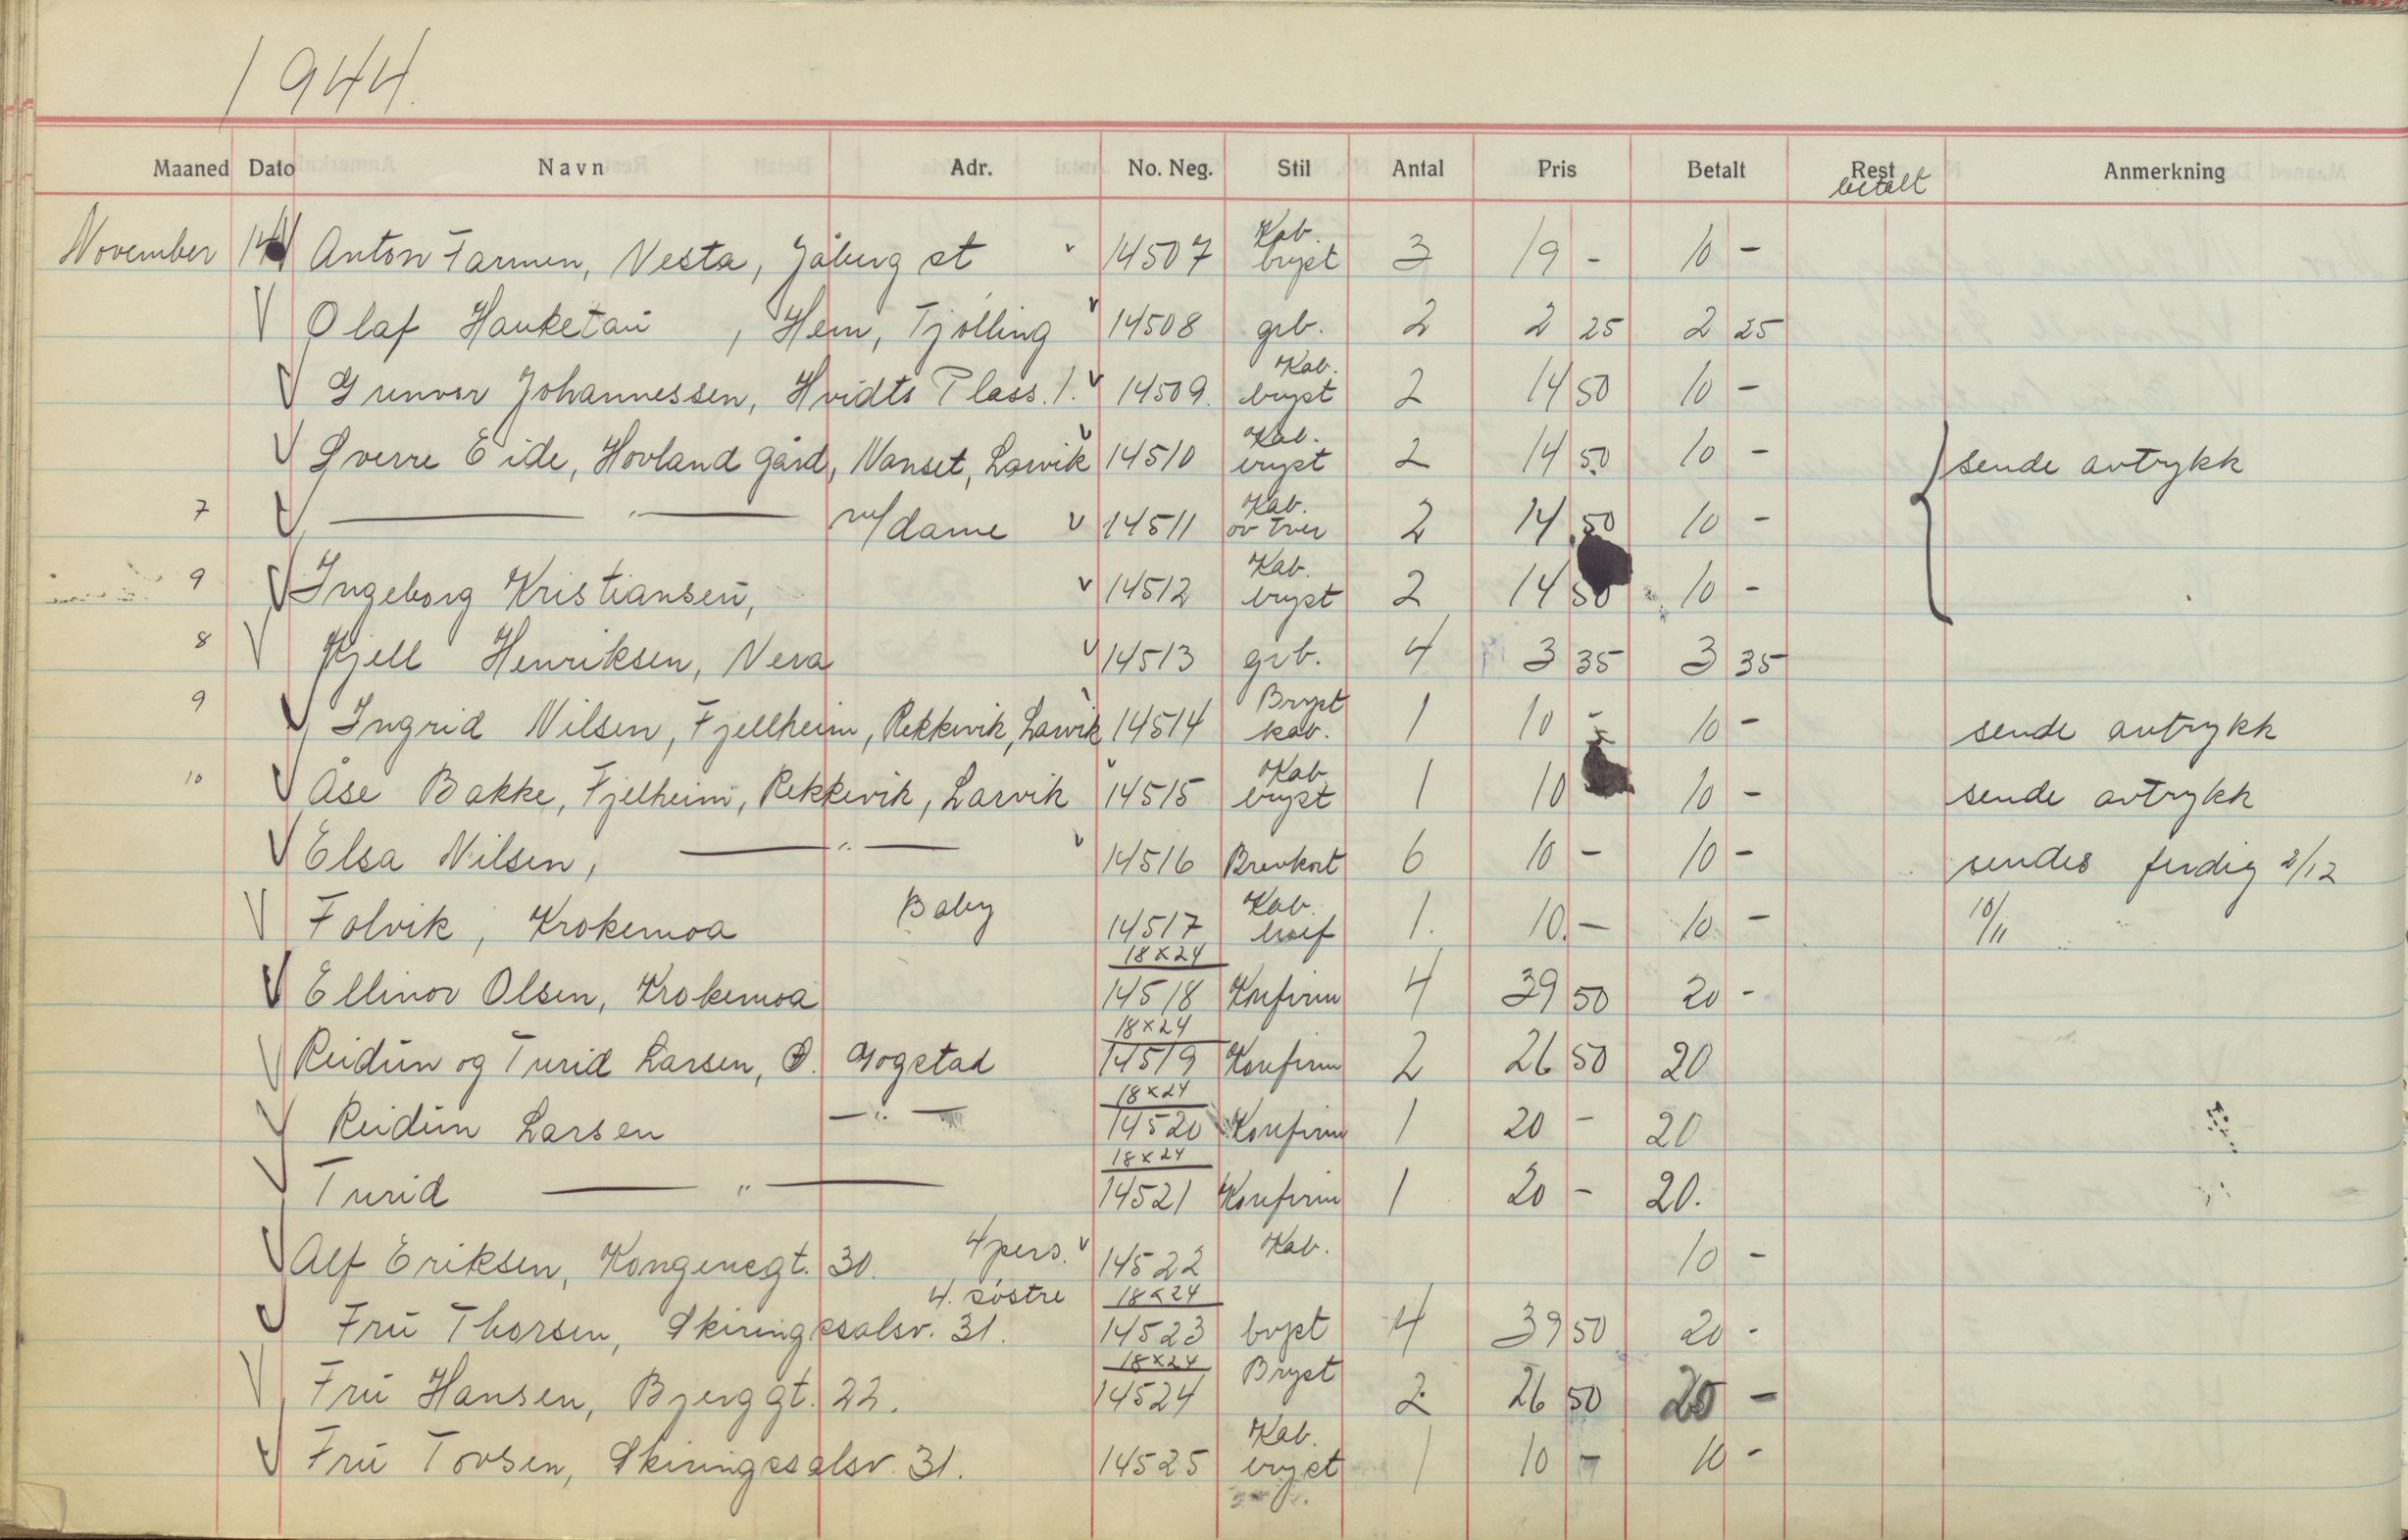 1944.
Maaned Dato Navn Adr. No. Neg. Stil Antal Pris Betalt Rest betalt Anmerkning
November 14 Anton Farmen, Vesta, Jåberg st 14507 Kab. bryst 3 19 - 10 -
Olaf Hauketau, Hem, Tjølling 14508 grb. 2 2 25 2 25
Gunvor Johannessen, Hvidts Plass. 1. 14509. Kab. bryst 2 14 50 10 -
Sverre Eide, Hovland gård, Nanset, Larvik 14510 Kab. bryst 2 14 50 10 - sende avtrykk
7 — " — m/dame 14511 Kab. ov tver 2 14 50 10 -
9 Ingeborg Kristiansen, 14512 Kab. bryst 2 14 50 10 -
8 Kjell Henriksen, Vera 14513 grb. 4 3 35 3 35
9 Ingrid Nilsen, Fjellheim, Rekkevik, Larvik 14514 Bryst kab. 1 10 - 10 - sende avtrykk
10 Åse Bakke, Fjelheim, Rekkevik, Larvik 14515 Kab bryst 1 10 10 - sende avtrykk
Elsa Nilsen, — " — 14516 Brevkort 6 10 - 10 - sendes ferdig 2/12
Folvik, Krokemoa Baby 14517 Kab. 1. 10. - 10. - 10/11
Ellinor Olsen, Krokemoa 18x24 14518 Konfirm 4 39 50 20 -
Reidun og Turid Larsen, Ø. Gogstad 18x24 14519 Konfirm 2 26 50 20
Reidun Larsen — " — 18x24 14520 Konfirm 1 20 - 20
Turid — " — 18x24 14521 Konfirm 1 20 - 20.
Alf Eriksen, Kongensgt. 30. 4 pers. 14522 Kab. 10 -
Fru Thorsen, Skiringssalsv. 31. 4. søstre 18x24 14523 bryst 4 39 50 20 -
Fru Hansen, Bjerggt. 22. 18x24 14524 Bryst 2 26 50 20 -
Fru Torsen, Skiringssalsv. 31. 14525 Kab. bryst 1 10 - 10 -